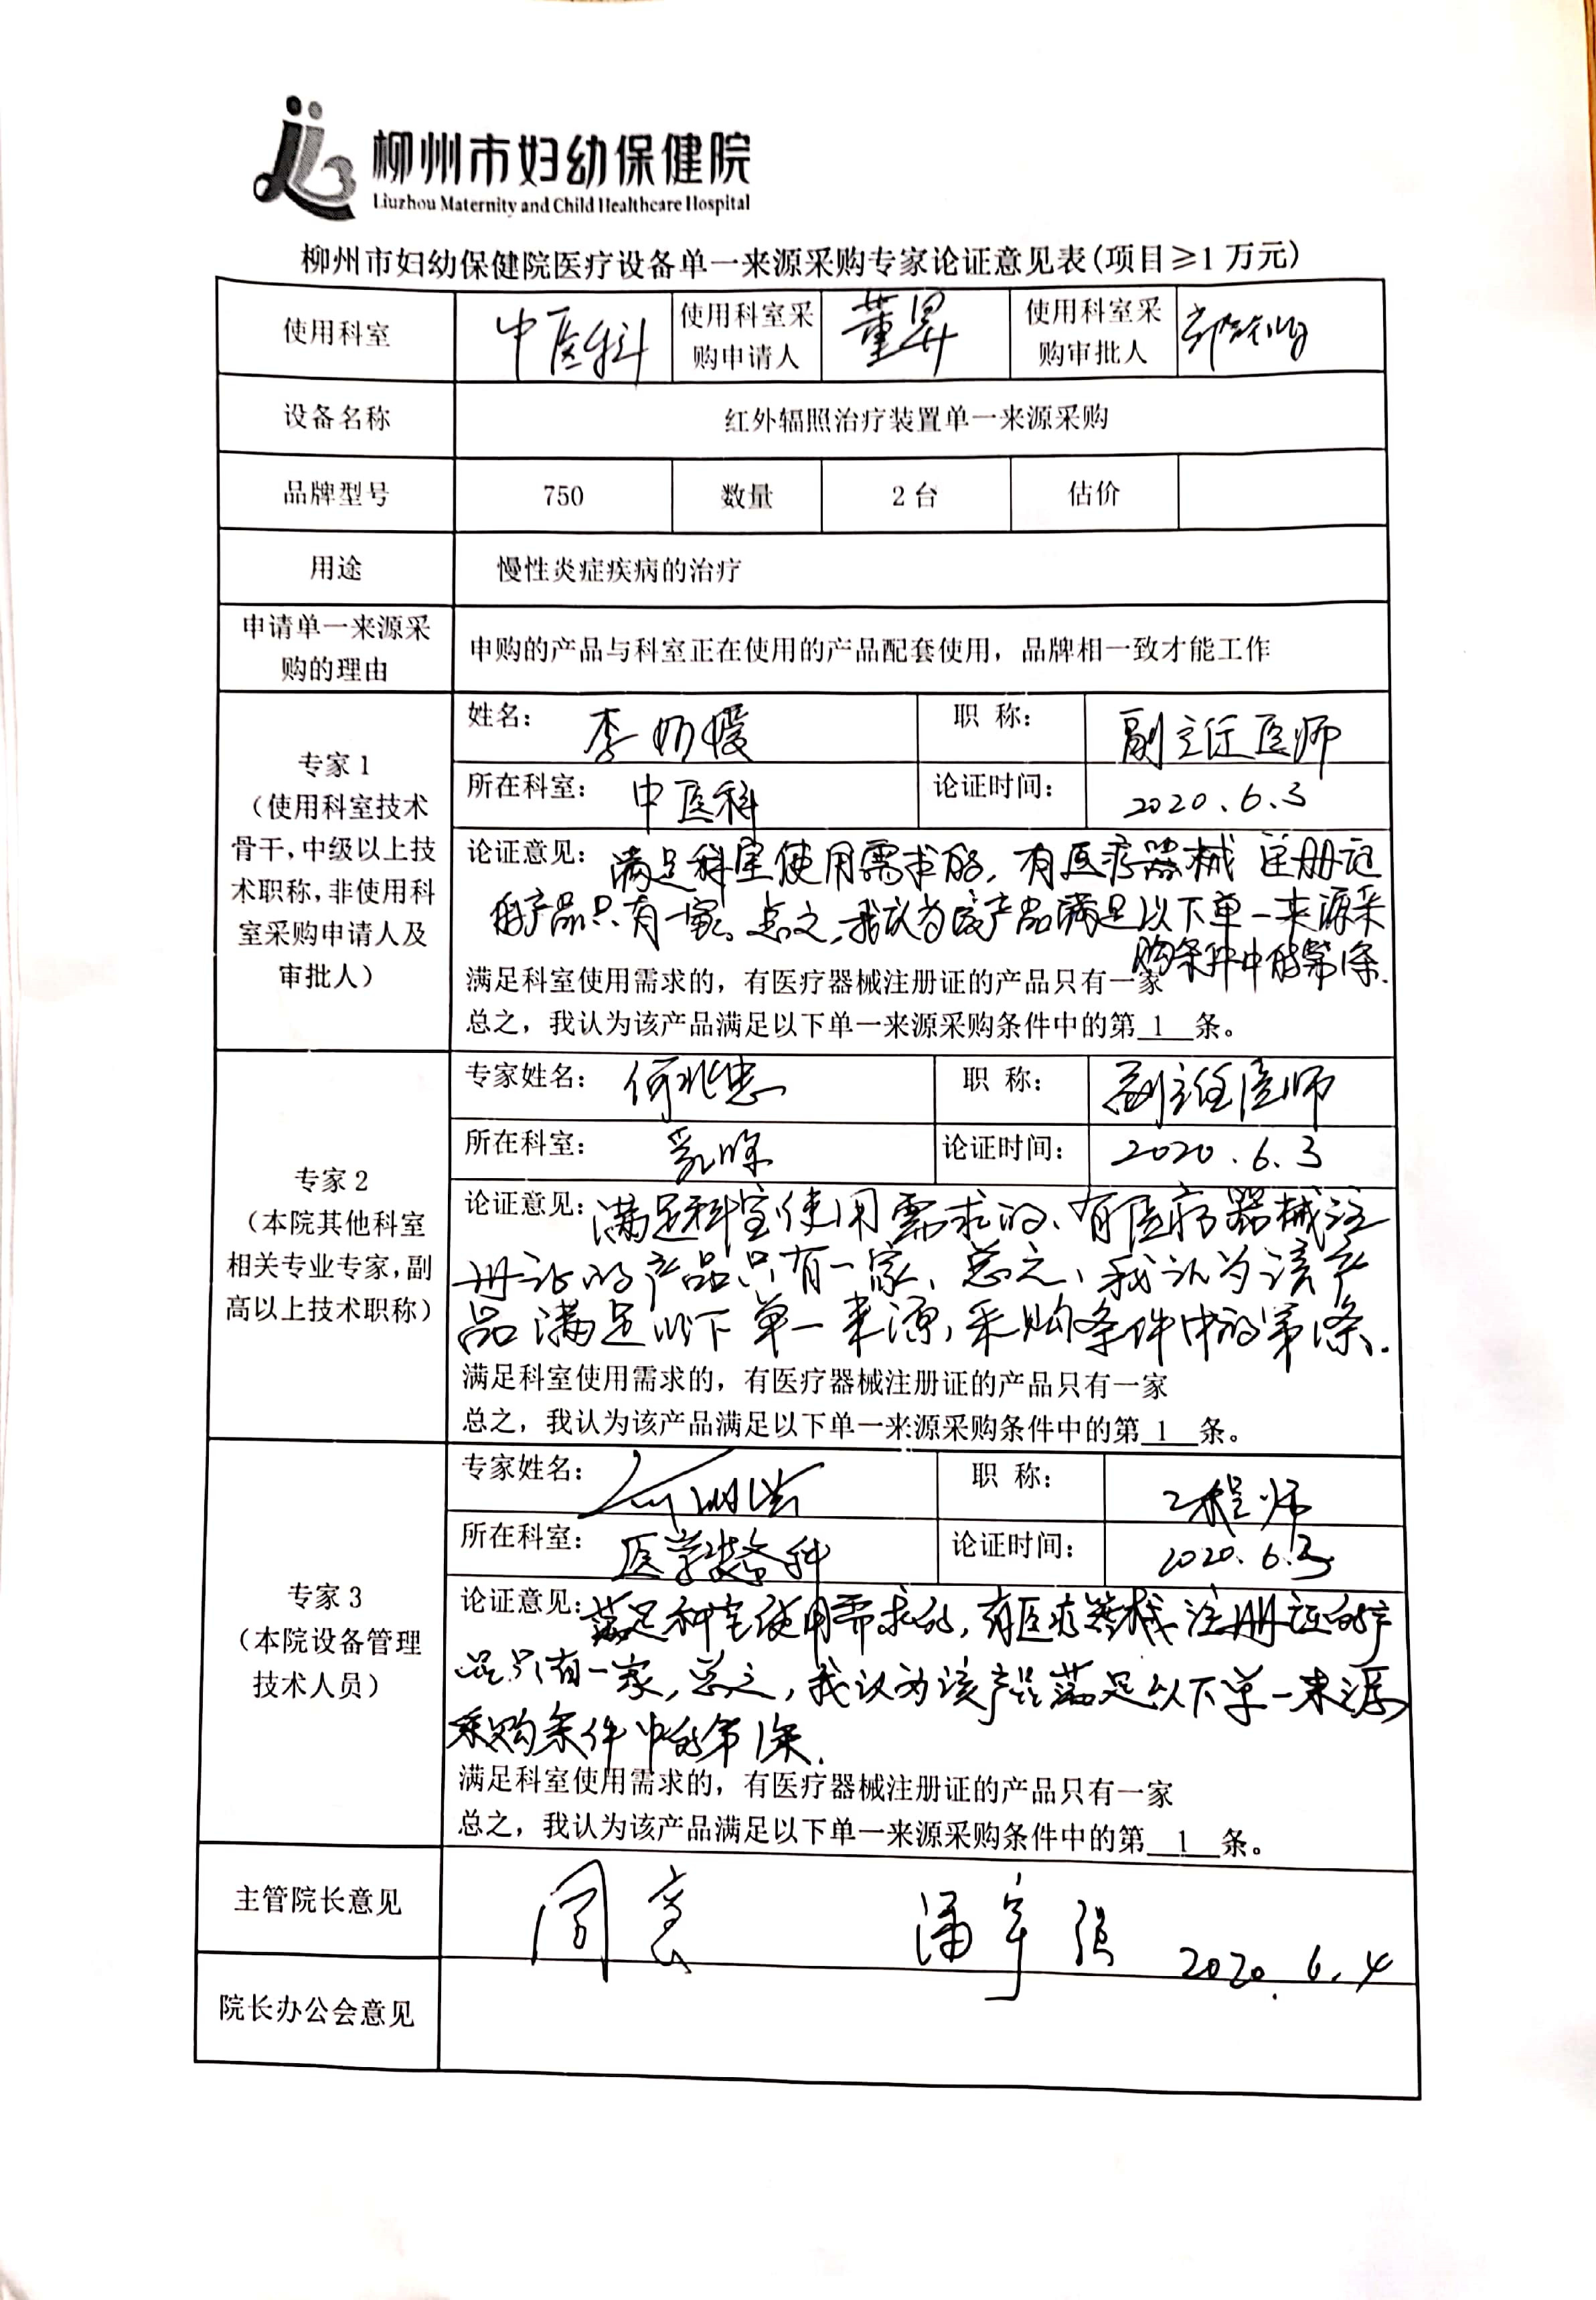 柳州市妇幼保健院
Liuzhou Maternity and Child Healthcare Hospital
柳州市妇幼保健院医疗设备单一来源采购专家论证意见表(项目≥1万元)
使用科室 中医科 使用科室采购申请人 董昇 使用科室采购审批人
设备名称 红外辐照治疗装置单一来源采购
品牌型号 750 数量 2台 估价
用途 慢性炎症疾病的治疗
申请单一来源采购的理由 申购的产品与科室正在使用的产品配套使用，品牌相一致才能工作
专家1
（使用科室技术
骨干,中级以上技
术职称,非使用科
室采购申请人及
审批人）
姓名： 李 职 称： 副主任医师
所在科室： 中医科 论证时间： 2020.6.3
论证意见： 满足科室使用需求的，有医疗器械注册证
的产品只有一家。总之，我认为该产品满足以下单一来源采
购条件中的第1条.
满足科室使用需求的，有医疗器械注册证的产品只有一家
总之，我认为该产品满足以下单一来源采购条件中的第 1 条。
专家2
（本院其他科室
相关专业专家,副
高以上技术职称）
专家姓名： 何兆忠 职 称： 副主任医师
所在科室： 乳保 论证时间： 2020.6.3
论证意见： 满足科室使用需求的、有医疗器械注
册证的产品只有一家、总之、我认为该产
品满足以下单一来源，采购条件中的第1条.
满足科室使用需求的，有医疗器械注册证的产品只有一家
总之，我认为该产品满足以下单一来源采购条件中的第 1 条。
专家3
（本院设备管理
技术人员）
专家姓名： 职 称： 工程师
所在科室： 医学装备科 论证时间： 2020.6.3
论证意见： 满足科室使用需求的，有医疗器械注册证的产
品只有一家，总之，我认为该产品满足以下单一来源
采购条件中的第1条.
满足科室使用需求的，有医疗器械注册证的产品只有一家
总之，我认为该产品满足以下单一来源采购条件中的第 1 条。
主管院长意见 同意 潘 强 2020.6.4
院长办公会意见